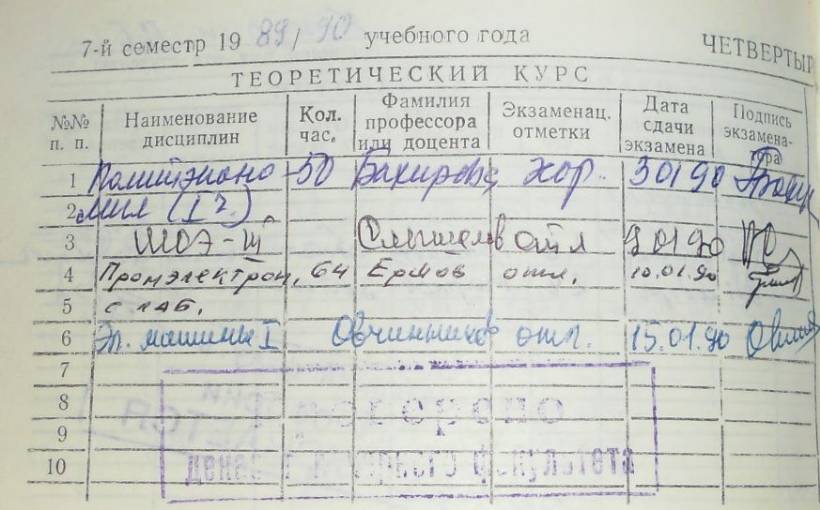 7-й семестр 19 89/90 учебного года ЧЕТВЕРТЫЙ
ТЕОРЕТИЧЕСКИЙ КУРС
№№ п. п. Наименование дисциплин Кол. час. Фамилия профессора или доцента Экзаменац. отметки Дата сдачи экзамена Подпись экзамена-тора
1 Политэконо- 50 Бакирова хор. 30190
2 мия (I ч.)
3 ШОЭ-III отл 9.01.90
4 Промэлектрон, 64 Ермов отл. 10.01.90
5 с лаб.
6 Эл. машины I Овчинников отл. 15.01.90
7
8
9
10